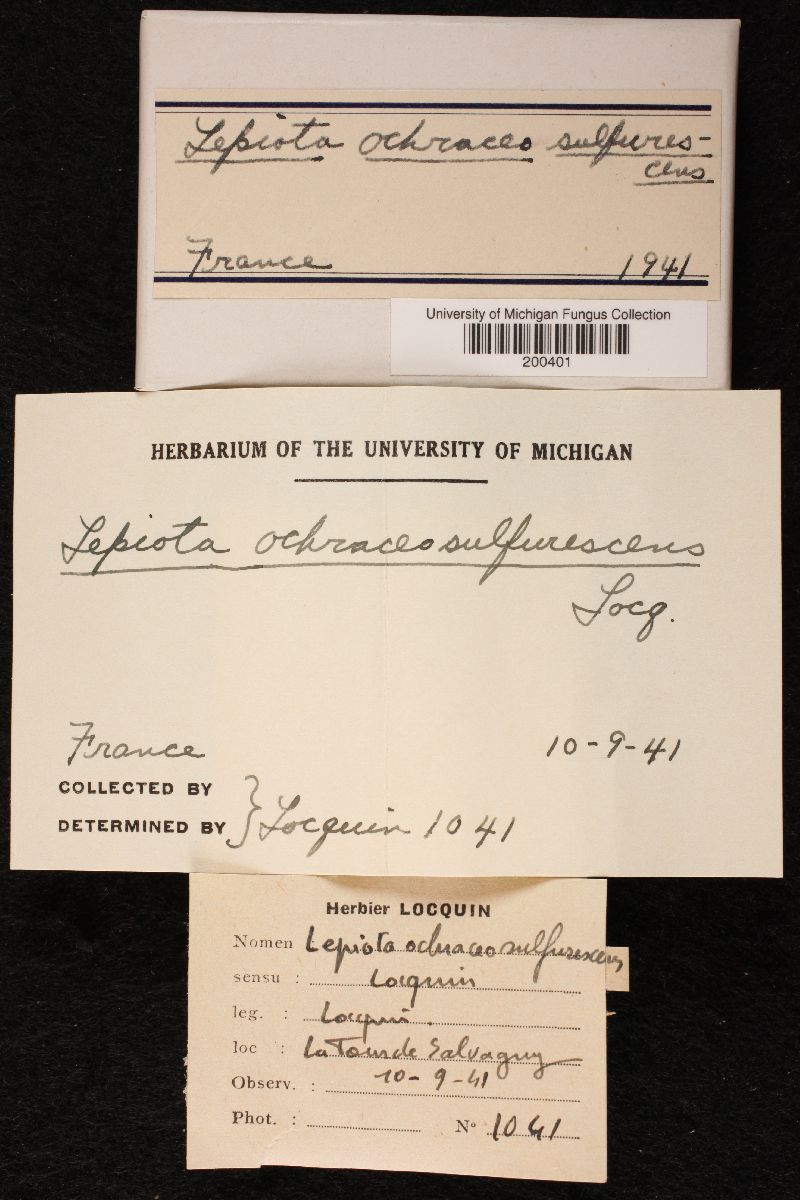 Lepiota ochraceo sulfures-
cens
France 1941
University of Michigan Fungus Collection
200401
HERBARIUM OF THE UNIVERSITY OF MICHIGAN
Lepiota ochraceosulfurescens
Locq.
France 10-9-41
COLLECTED BY
DETERMINED BY } Locquin 1041
Herbier LOCQUIN
Nomen Lepiota ochraceosulfurescens
sensu : Locquin
leg. : Locquin.
loc : La Tour de Salvagny
Observ. : 10-9-41
Phot. : N° 1041